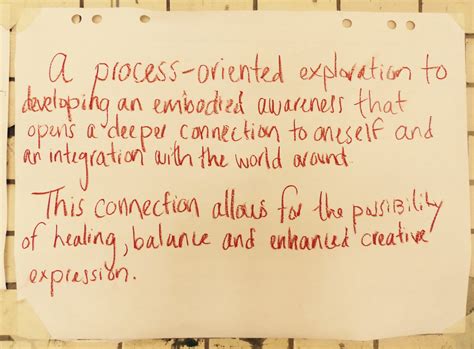 A process-oriented exploration to
developing an embodied awareness that
opens a deeper connection to oneself and
an integration with the world around.
This connection allows for the possibility
of healing, balance and enhanced creative
expression.